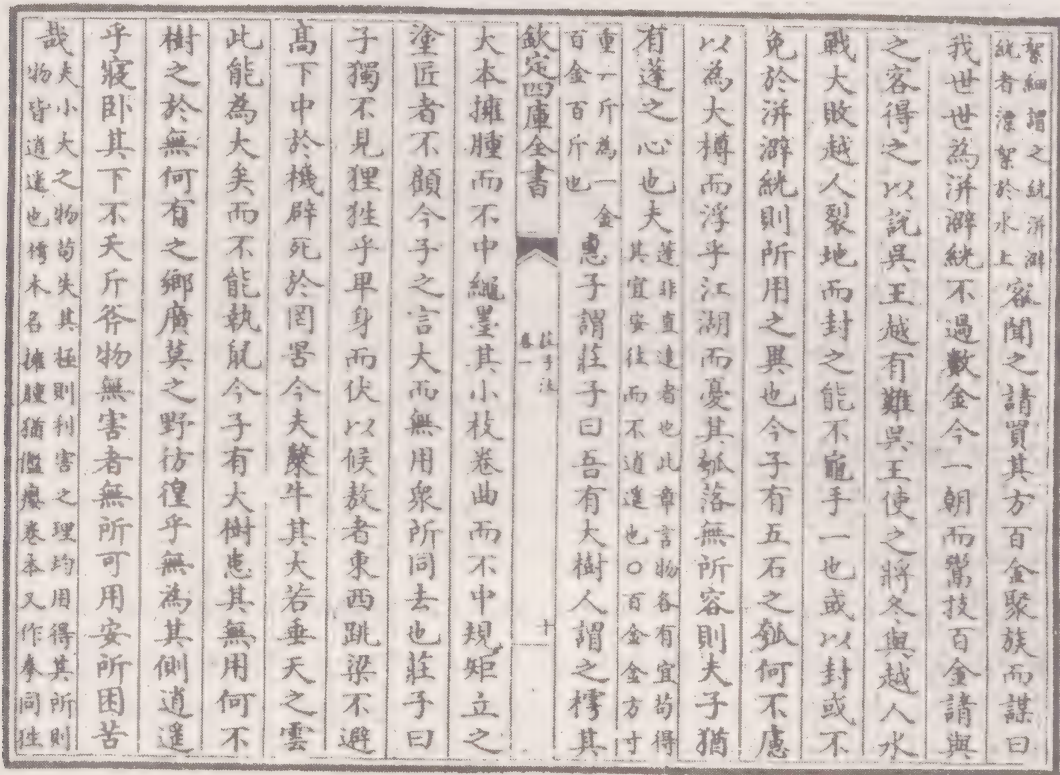 絮細謂之絖洴澼
絖者漂絮於水上
客聞之請買其方百金聚族而謀曰
我世世為洴澼絖不過數金今一朝而鬻技百金請與
之客得之以說吳王越有難吳王使之將冬與越人水
戰大敗越人裂地而封之能不龜手一也或以封或不
免於洴澼絖則所用之異也今子有五石之瓠何不慮
以為大樽而浮乎江湖而憂其瓠落無所容則夫子猶
有蓬之心也夫
蓬非直達者也此章言物各有宜苟得
其宜安往而不逍遙也○百金金方寸
重一斤為一金
百金百斤也
惠子謂莊子曰吾有大樹人謂之樗其
欽定四庫全書
莊子注
卷一
十
大本擁腫而不中繩墨其小枝卷曲而不中規矩立之
塗匠者不顧今子之言大而無用衆所同去也莊子曰
子獨不見狸狌乎卑身而伏以候敖者東西跳梁不避
髙下中於機辟死於罔罟今夫斄牛其大若垂天之雲
此能為大矣而不能執䑕今子有大樹患其無用何不
樹之於無何有之鄉廣莫之野彷徨乎無為其側逍遥
乎寢卧其下不夭斤斧物無害者無所可用安所困苦
哉
夫小大之物苟失其極則利害之理均用得其所則
物皆逍遥也樗木名擁腫猶盤癭卷本又作拳同狌